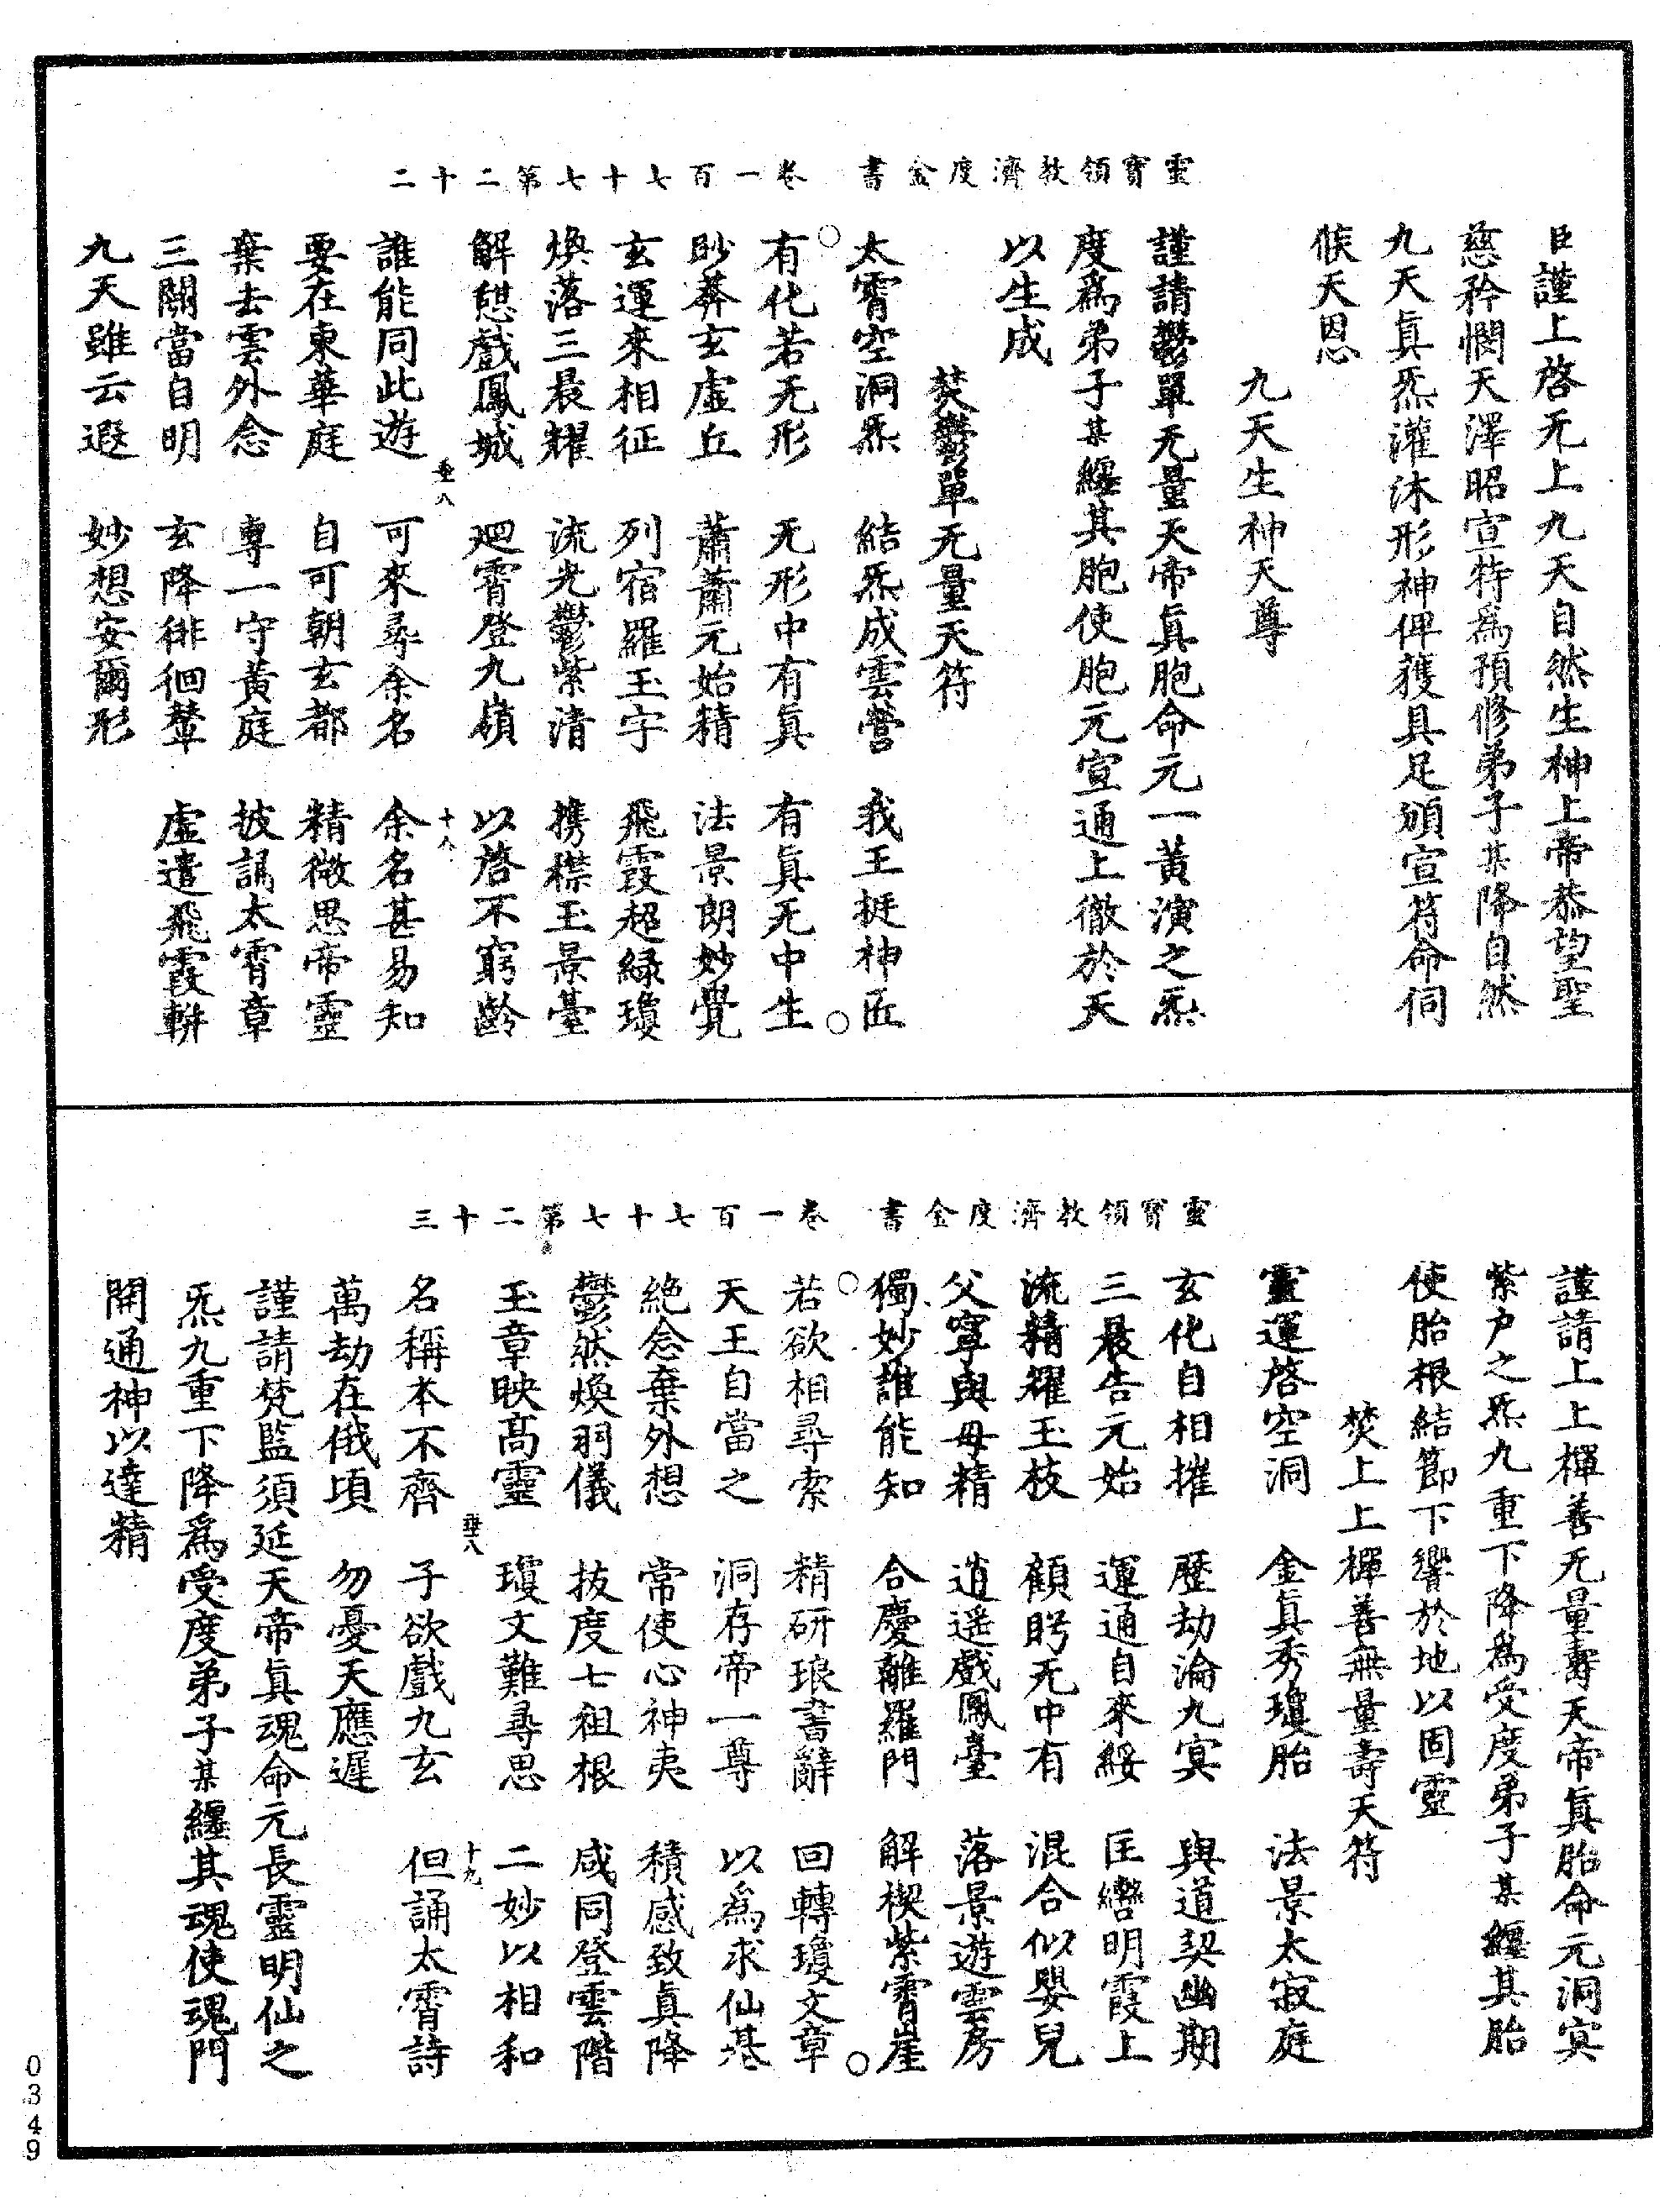 靈寶領教濟度金書　卷一百七十七第二十二
臣謹上啓无上九天自然生神上帝恭望聖
慈矜憫天澤昭宣特為預修弟子某降自然
九天真炁灌沐形神俾獲具足頒宣符命伺
候天恩
九天生神天尊
謹請鬱單无量天帝真胞命元一黃演之炁
度為弟子某纏其胞使胞元宣通上徹於天
以生成
焚鬱單无量天符
太霄空洞炁　結炁成雲營　我王挺神匠
○有化若无形　无形中有真　有真无中生○
眇莽玄虛丘　蕭蕭元始精　法景朗妙覺
玄運來相征　列宿羅玉宇　飛霞超綠瓊
煥落三晨耀　流光鬱紫清　携襟玉景臺
解憇戲鳳城　廻霄登九嶺　以啓不窮齡
垂八　十八
誰能同此遊　可來尋余名　余名甚易知
要在東華庭　自可朝玄都　精微思帝靈
棄去雲外念　專一守黃庭　披誦太霄章
三關當自明　玄降徘徊輦　虛遣飛霞輧
九天雖云遐　妙想安爾形
靈寶領教濟度金書　卷一百七十七第二十三
謹請上上禪善无量壽天帝真胎命元洞冥
紫户之炁九重下降為受度弟子某纏其胎
使胎根結節下響於地以固靈
焚上上禪善無量壽天符
靈運啓空洞　金真秀瓊胎　法景太寂庭
玄化自相摧　歷劫淪九冥　與道契幽期
三晨告元始　運通自來綏　匡轡明霞上
流精耀玉枝　顧眄无中有　混合似嬰兒
父寧與母精　逍遥戲鳳臺　落景遊雲房
獨妙誰能知　合慶離羅門　解楔紫霄崖
○若欲相尋索　精研琅書辭　回轉瓊文章○
天王自當之　洞存帝一尊　以為求仙基
絶念棄外想　常使心神夷　積感致真降
鬱然煥羽儀　拔度七祖根　咸同登雲階
玉章映髙靈　瓊文難尋思　二妙以相和
垂八　十九
名稱本不齊　子欲戲九玄　但誦太霄詩
萬劫在俄頃　勿憂天應遲
謹請梵監須延天帝真魂命元長靈明仙之
炁九重下降為受度弟子某纏其魂使魂門
開通神以達精
0349